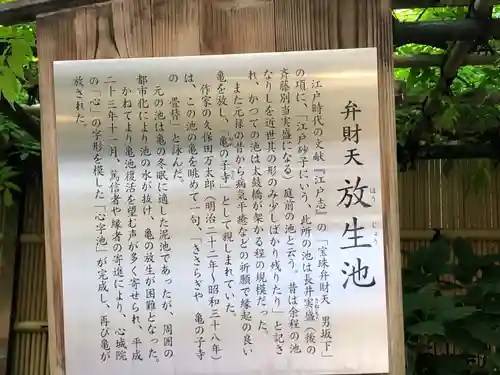 弁財天 放生池
ほう じょう
江戸時代の文献『江戸志』の「宝珠弁財天 男坂下」
の項に、「江戸砂子にいう、此所の池は長井実盛（後の
さねもり
斉藤別当実盛になる）庭前の池と云う。昔は余程の池
なりしを近世其の形のみ少しばかり残りたり」と記さ
れ、かつての池は太鼓橋が架かる程の規模だった。
また元禄の昔から病気平癒などの祈願で縁起の良い
亀を放し、「亀の子寺」として親しまれていた。
作家の久保田万太郎（明治二十二年～昭和三十八年）
は、この池の亀を眺めて一句、「きさらぎや 亀の子寺
の 畳替」と詠んだ。
元の池は亀の冬眠に適した泥池であったが、周囲の
都市化により池の水が抜け、亀の放生が困難となった。
かねてより亀池復活を望む声が多く寄せられ、平成
二十三年十二月、篤信者や縁者の寄進により、心城院
の「心」の字形を模した「心字池」が完成し、再び亀が
放された。